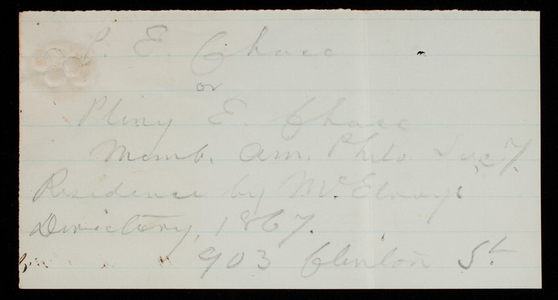 P. E. Chase
or
Pliny E. Chase
Memb. Am. Philo. Soc'y.
Residence by McElroy's
Directory, 1867.
903 Clinton St.